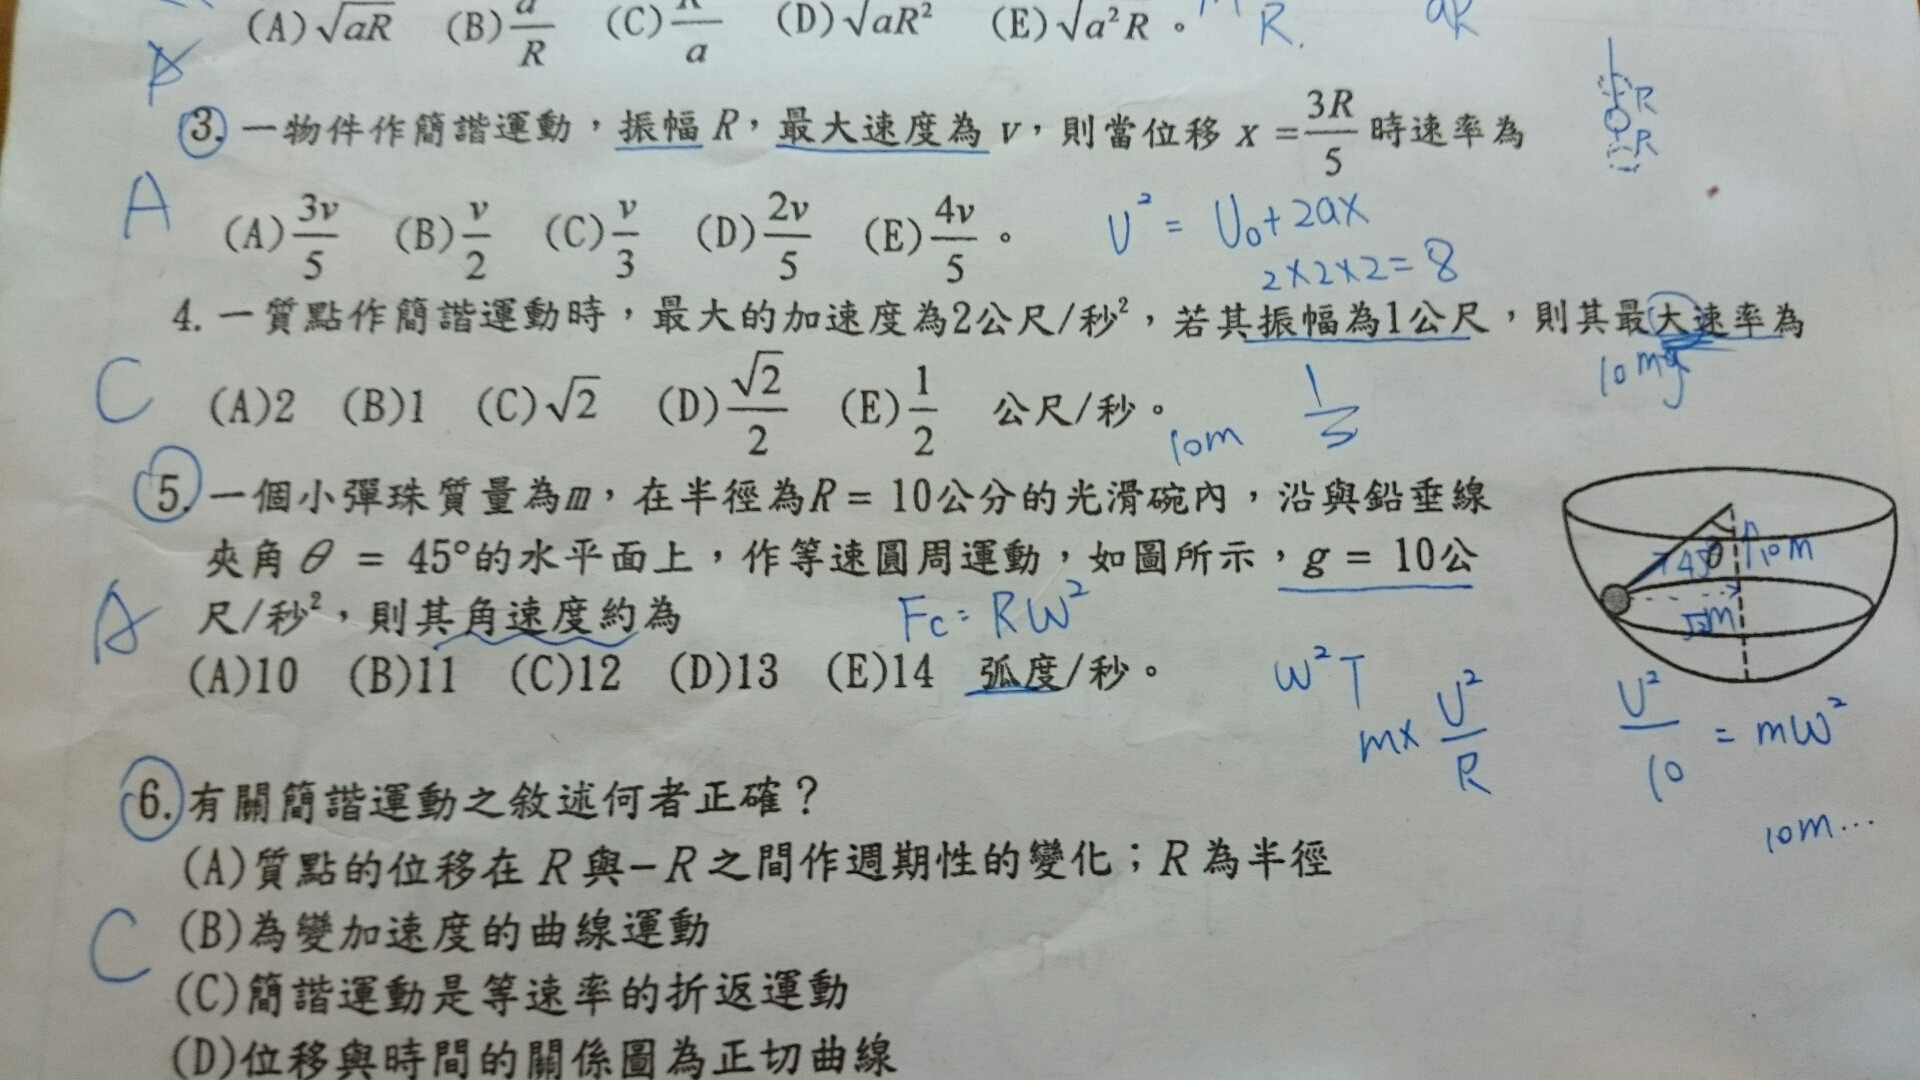 (A)√aR (B)a/R (C)R/a (D)√aR² (E)√a²R 。
R.
aR
3. 一物件作簡諧運動，振幅 R，最大速度為 v，則當位移 x = 3R/5 時速率為
R
R
A
(A)3v/5 (B)v/2 (C)v/3 (D)2v/5 (E)4v/5 。
U² = U₀+2ax
2×2×2=8
4. 一質點作簡諧運動時，最大的加速度為2公尺/秒²，若其振幅為1公尺，則其最大速率為
10mg
C
(A)2 (B)1 (C)√2 (D)√2/2 (E)1/2 公尺/秒。
10m
5. 一個小彈珠質量為m，在半徑為R = 10公分的光滑碗內，沿與鉛垂線
夾角θ = 45°的水平面上，作等速圓周運動，如圖所示，g = 10公
45° θ 10m
尺/秒²，則其角速度約為
Fc = RW²
A
(A)10 (B)11 (C)12 (D)13 (E)14 弧度/秒。
W²T
m× U²/R
U²/10 = mW²
10m...
6. 有關簡諧運動之敘述何者正確？
(A)質點的位移在 R 與−R 之間作週期性的變化；R 為半徑
C
(B)為變加速度的曲線運動
(C)簡諧運動是等速率的折返運動
(D)位移與時間的關係圖為正切曲線